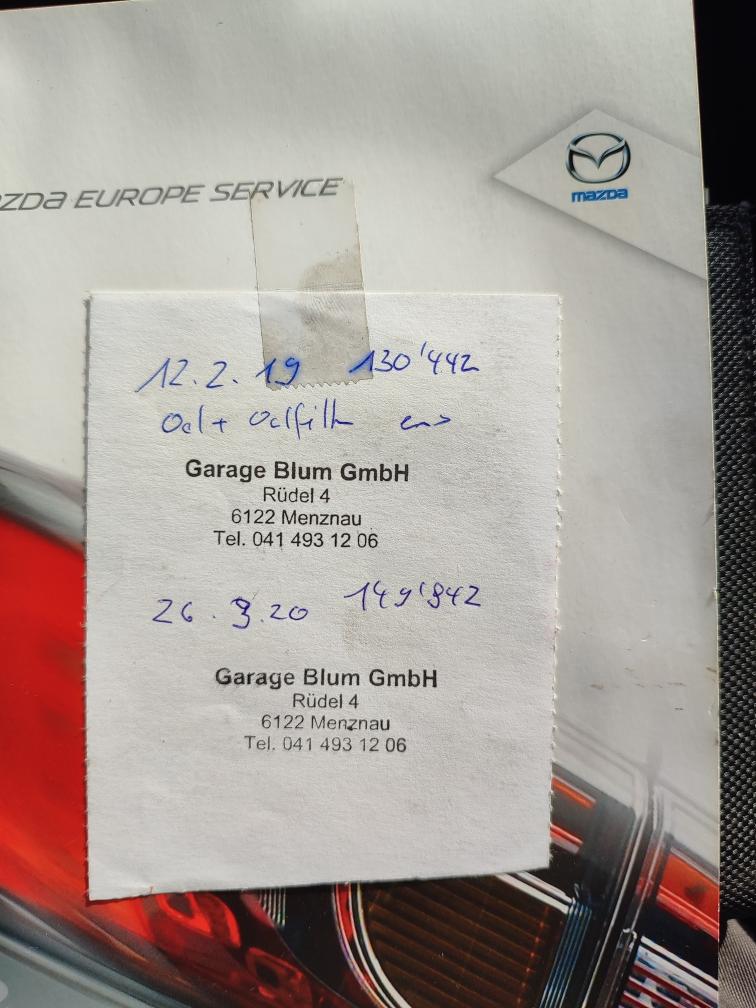 mazda
AZDA EUROPE SERVICE
12.2.19 130'442
Oel + Oelfilter
Garage Blum GmbH
Rüdel 4
6122 Menznau
Tel. 041 493 12 06
26. .20
Garage Blum GmbH
Rüdel 4
6122 Menznau
Tel. 041 493 12 06